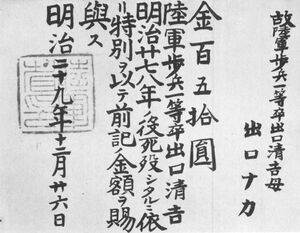 故陸軍歩兵一等卒出口清吉母
出口ナカ
金百五拾圓
陸軍歩兵一等卒出口清吉
明治廿七八年ノ役死歿シタルニ依
リ特別ヲ以テ前記ノ金額ヲ賜
與ス
明治二十九年十二月廿六日